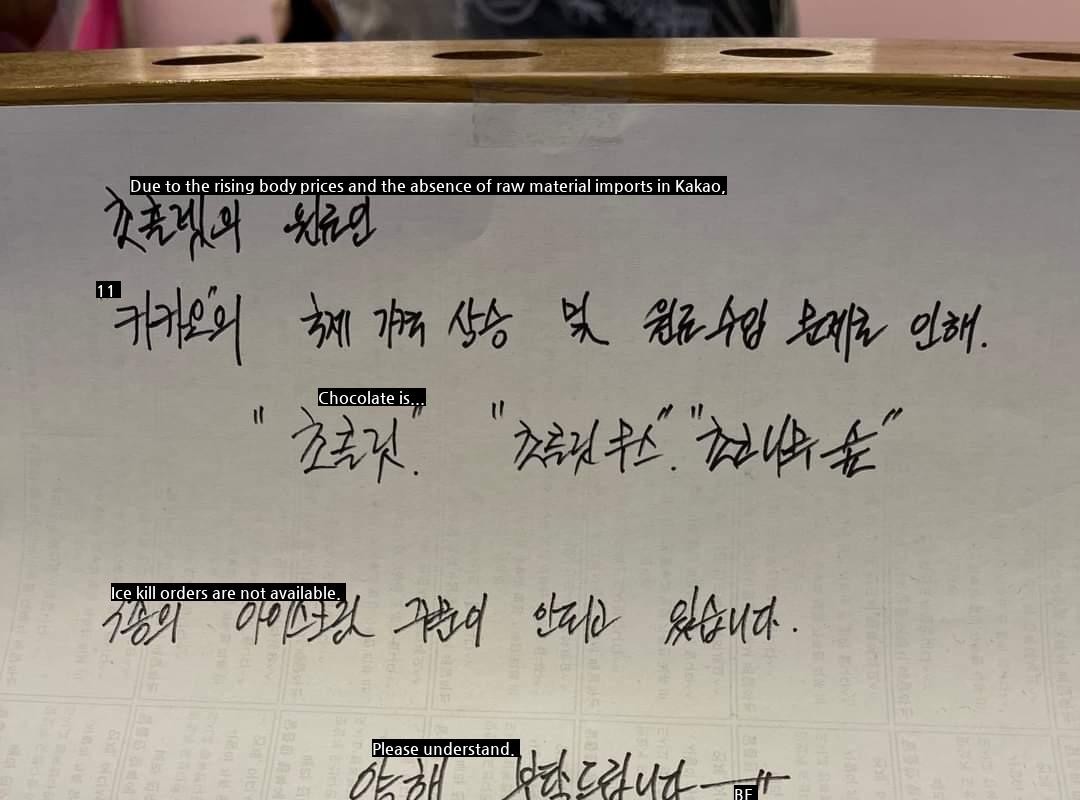 Due to the rising body prices and the absence of raw material imports in Kakao,
초콜렛의 원료인
11
카카오"의 국제 가격 상승 및 원료 수입 문제로 인해.
Chocolate is...
" 초콜릿". "초콜릿 무스". "초코나무 숲"
Ice kill orders are not available.
아이스크림 안되고 있습니다.
Please understand.
양해 부탁드립니다
BF